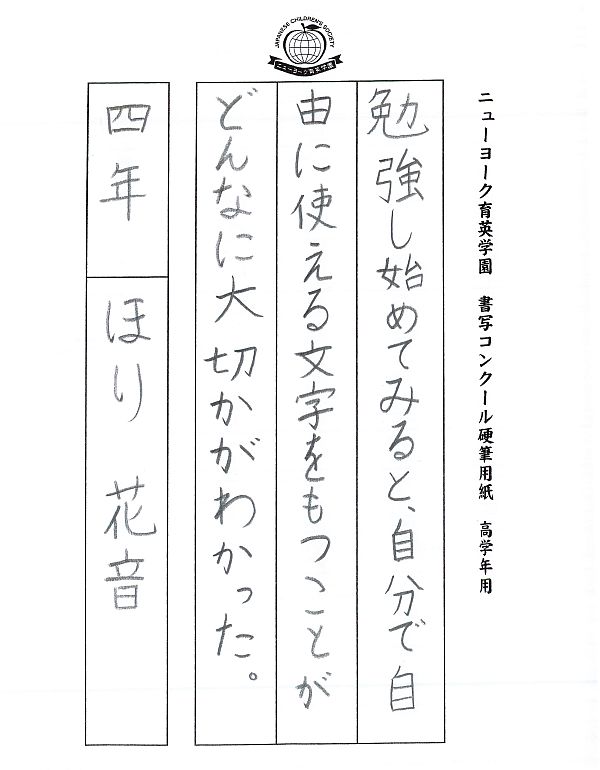 JAPANESE CHILDREN'S SOCIETY
ニューヨーク育英学園
ニューヨーク育英学園 書写コンクール硬筆用紙 高学年用
勉強し始めてみると、自分で自
由に使える文字をもつことが
どんなに大切かがわかった。
四年 ほり 花音